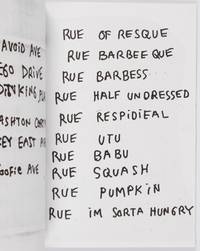 AVOID AVE
EGO DRIVE
ASHTON
KEY EAST
GOOFIE AVE
RUE OF RESQUE
RUE BARBEEQUE
RUE BARBESS
RUE HALF UNDRESSED
RUE RESPIDIEAL
RUE UTU
RUE BABU
RUE SQUASH
RUE PUMPKIN
RUE iM SORTA HUNGRY